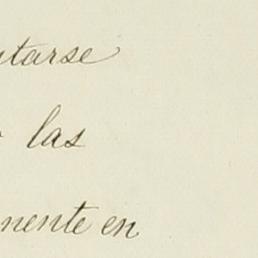 tarse
las
nente en